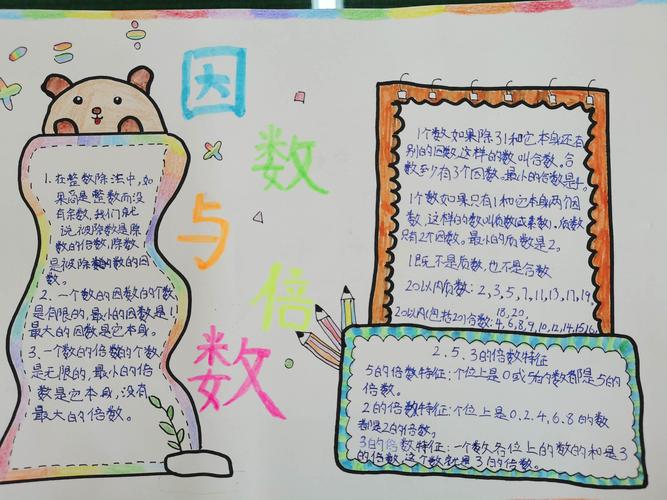 因数与倍数
1.在整数除法中,如
果商是整数而没
有余数,我们就
说被除数是除
数的倍数,除数
是被除数的因
数。
2.一个数的因数的个数
是有限的,最小的因数是1
最大的因数是它本身。
3.一个数的倍数的个数
是无限的,最小的倍
数是它本身,没有
最大的倍数。
1个数如果除了1和它本身还有
别的因数,这样的数叫合数。合
数至少有3个因数,最小的合数是4。
1个数如果只有1和它本身两个因
数,这样的数叫质数(或素数)。质数
只有2个因数。最小的质数是2。
1既不是质数,也不是合数
20以内质数:2,3,5,7,11,13,17,19
18,20.
20以内(包括20)合数:4,6,8,9,10,12,14,15,16
2.5.3的倍数特征
5的倍数特征:个位上是0或5的数都是5的
倍数。
2的倍数特征:个位上是0.2.4.6.8的数
都是2的倍数。
3的倍数特征:一个数各位上的数的和是3
的倍数,这个数就是3的倍数。